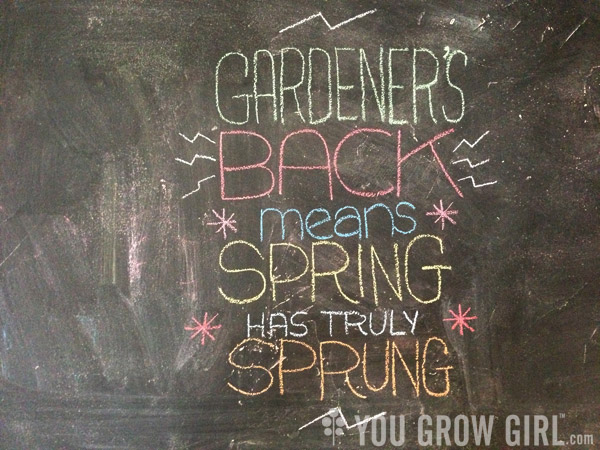 GARDENER'S
BACK
means
SPRING
HAS TRULY
SPRUNG
YOU GROW GIRL™.com